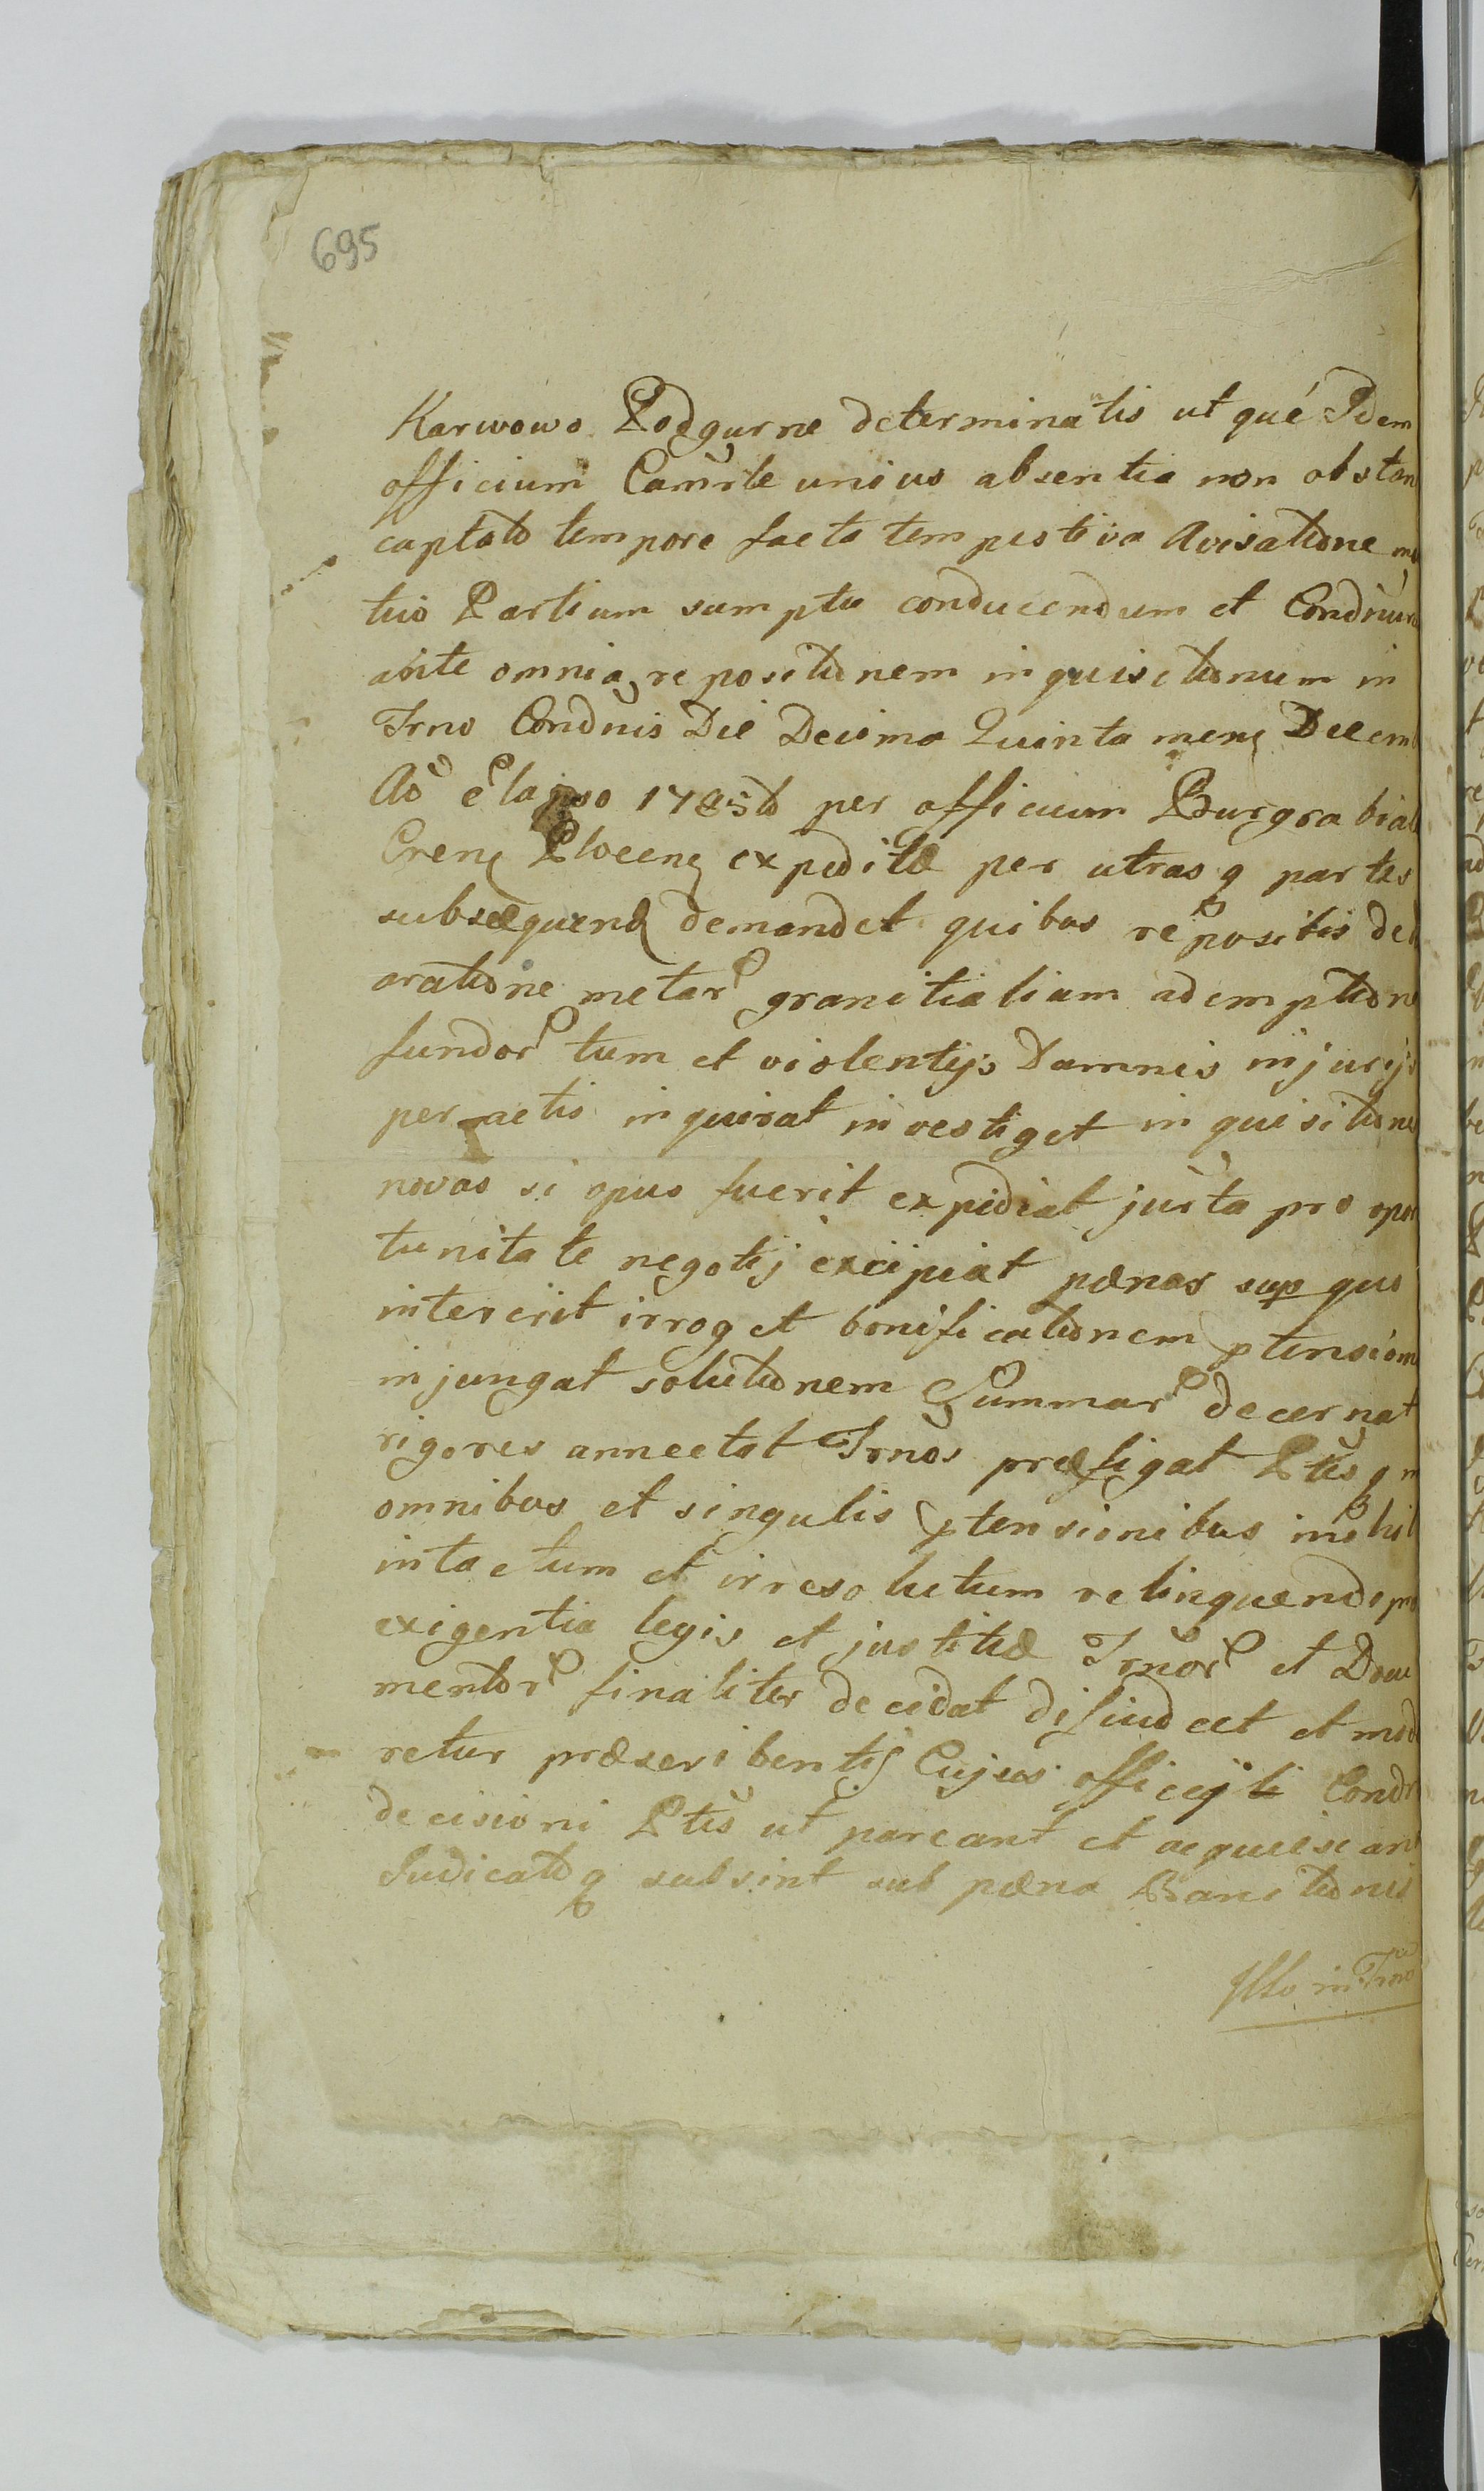 695
Karwowo Podgurne determinatis ut qué Idem
officium Camrle unius absentia non obstan
captato tempore facta tempestiva Avisatione mu
tuo Partium sumptu conducendum et Condnum
ante omnia repositionem inquisitionum in
Trno Condnis Die Decima Quinta mens Decem
Ao elapso 1785to per officium Burgrabial
Crens Plocens expeditæ per utrasq partes
subsequend demandet quibus repositis de
oratione metar granitialium ademptione
fundor tum et violentijs Damnis injurijs
peractis inquirat investiget inquisitiones
novas si opus fuerit expediat jurta pro opor
tunitate negotij excipiat pœnas sup quo
intererit irroget bonificationem ptension
injungat solutionem Summar decernat
rigores annectat Trnos præfigat Ptes q
omnibus et singulis ptensionibus nihil
intactum et irresolutum relinquendo pro
exigentia legis et justitiæ Trnor et Docu
mentor finaliter decidat dijudicet et mode
retur præscribentis Cujus officij Condn
decisioni Ptes ut pareant et acquiescant
Judicatoq subsint sub pœna Banitionis
Illo in Trno